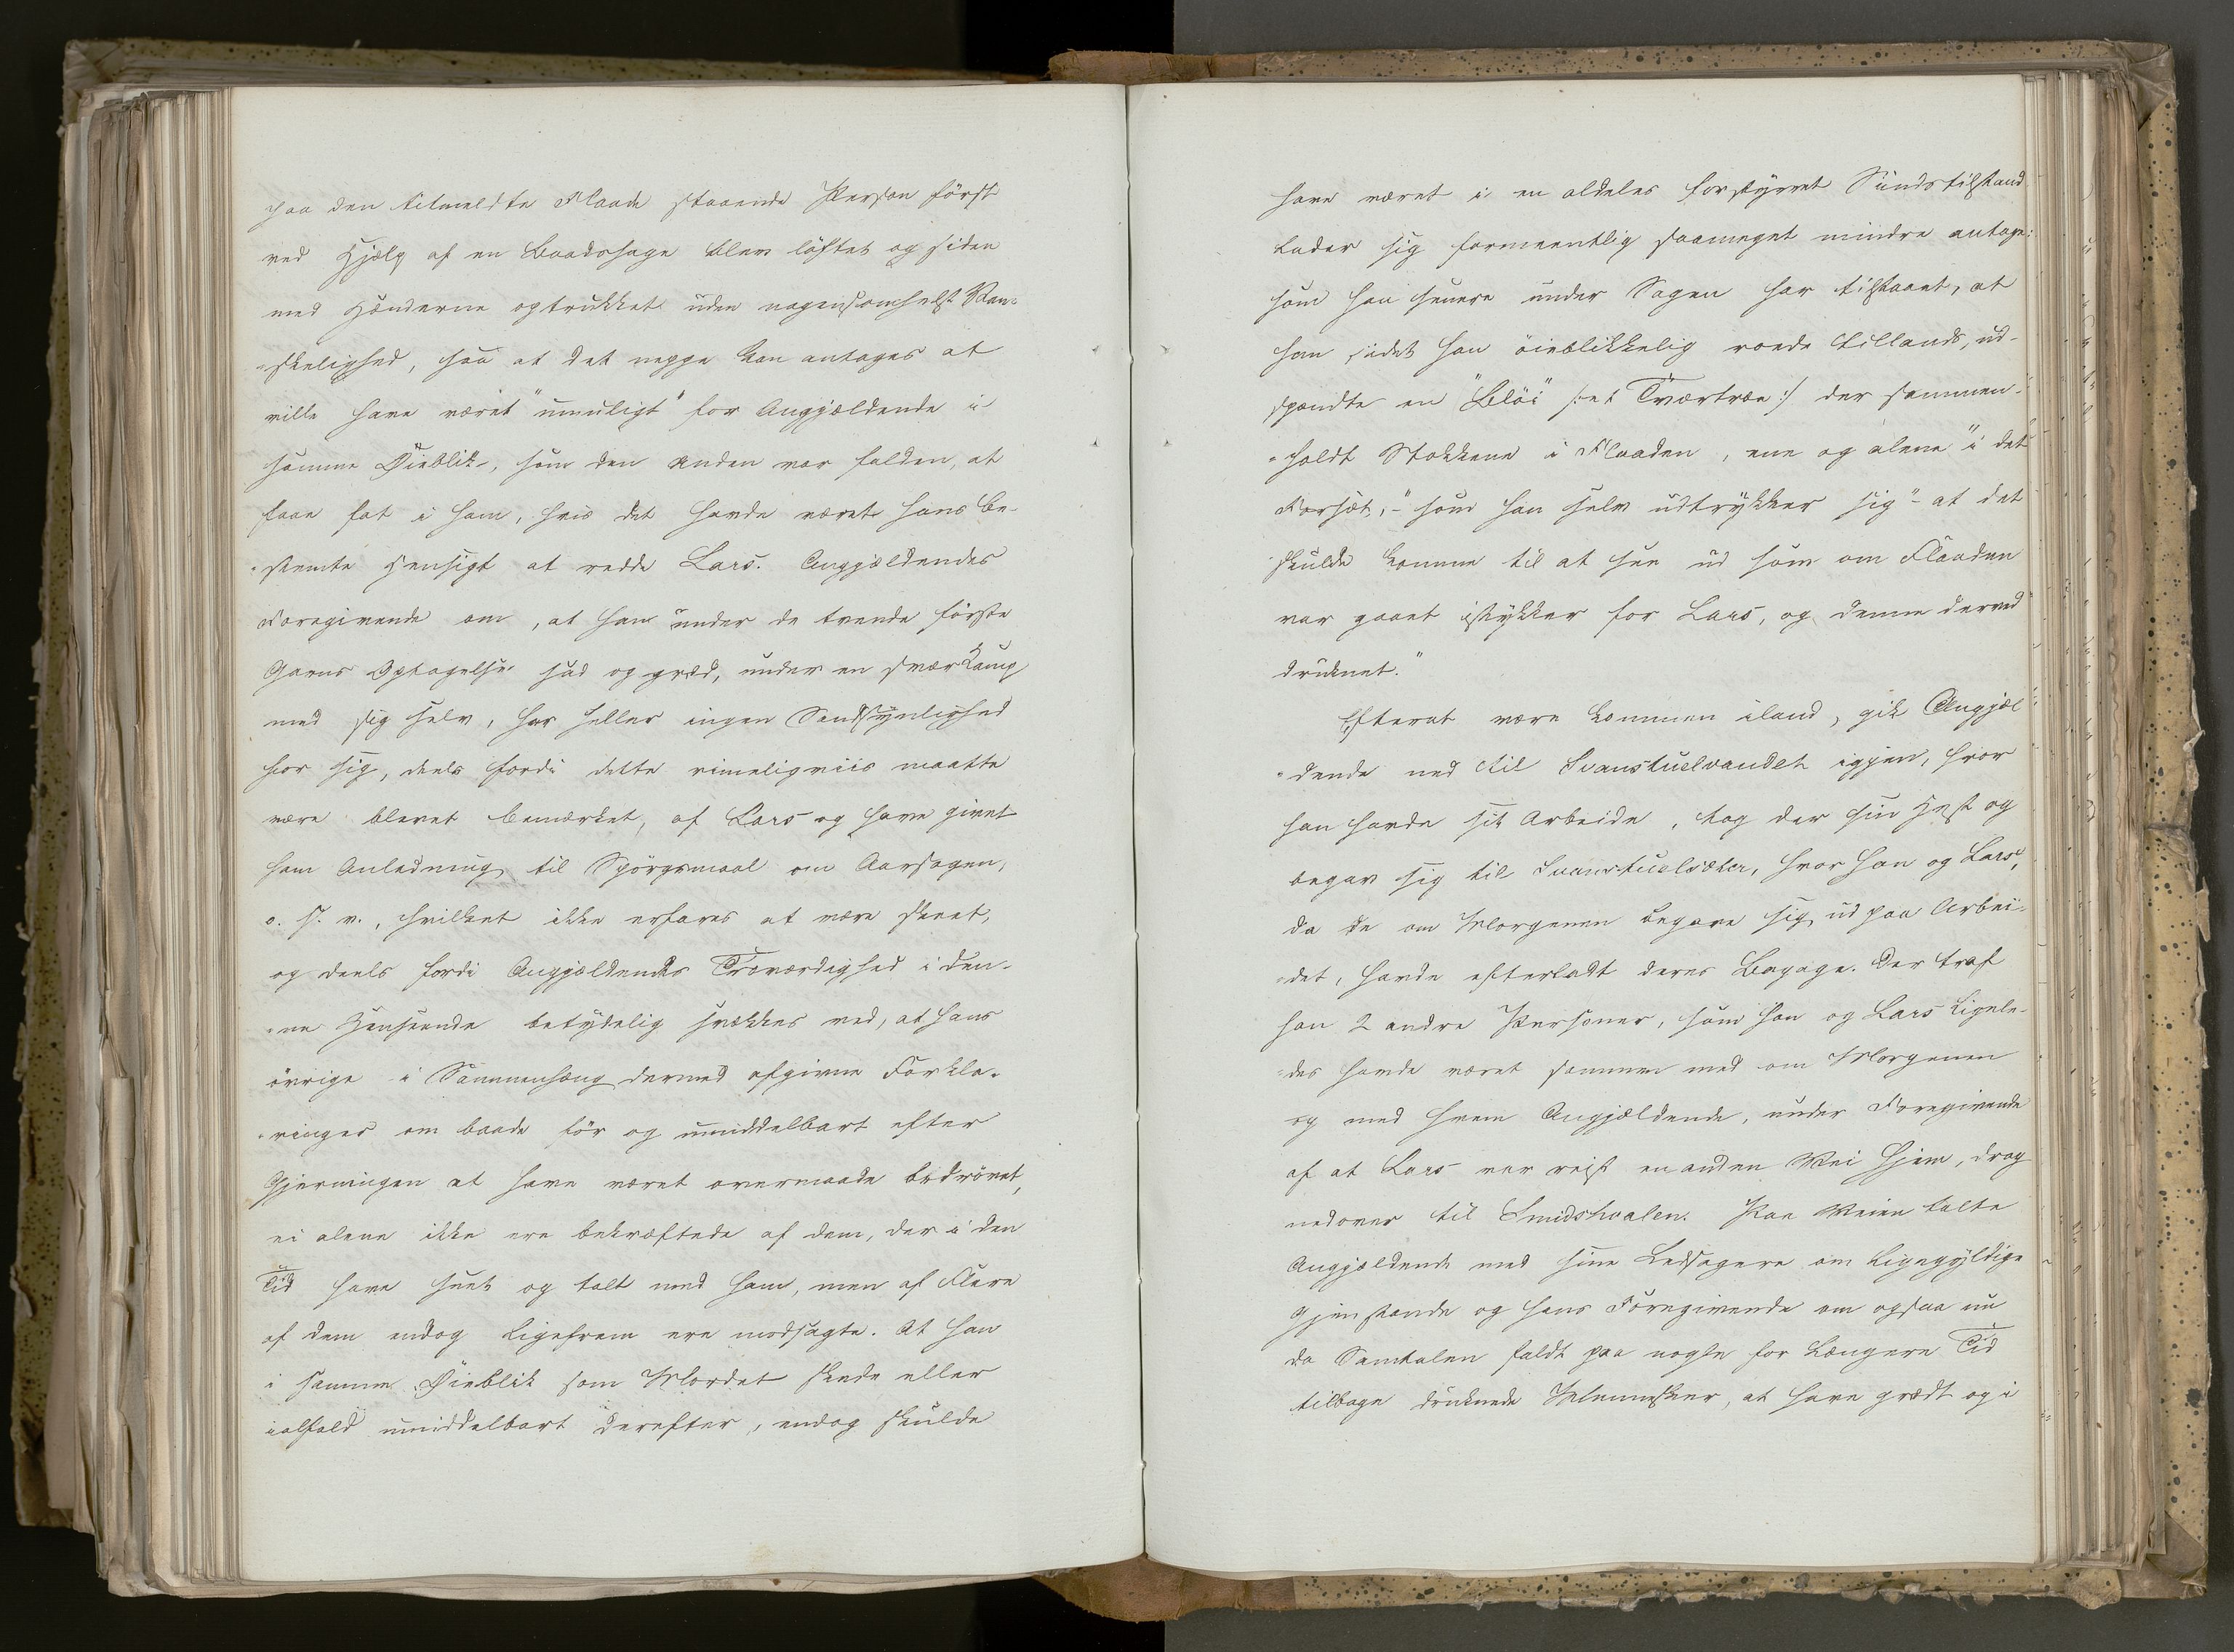 paa den tilmeldte Flaade staaende Person först
ved Hjælp af en Baadshage blev löftet og siden
med Hænderne optrukket uden nogensomhelst Van-
skelighed, saa at det neppe kan antages at
ville have været "umuligt" for Angjældende i
samme Öieblik, som den Anden var falden, at
faae fat i ham, hvis det havde været hans be-
stemte Hensigt at redde Lars. Angjældendes
Foregivende om, at han under de tvende förste
Garns Optagelse sad og græd, under en svær Kamp
med sig selv, har heller ingen Sandsynlighed
for sig, deels fordi dette rimeligviis maatte
være blevet bemærket, af Lars og have givet
ham Anledning til Spörgsmaal om Aarsagen,
o. s. v., hvilket ikke erfares at være skeet,
og deels fordi Angjældendes Troværdighed i den-
ne Henseende betydelig svækkes ved, at hans
övrige i Sammenhæng dermed afgivne Forkla-
ringer om baade för og umiddelbart efter
Gjerningen at have været overmaade bedrövet,
ei alene ikke ere bekræftede af dem, der i den
Tid have seet og talt med ham, men af Flere
af dem endog ligefrem ere modsagte. At han
i samme Öieblik som Mordet skede eller
ialfald umiddelbart derefter, endog skulde
have været i en aldeles forstyrret Sindstilstand
lader sig formeentlig saameget mindre antage:
som han senere under Sagen har tilstaaet, at
han, sidst han öieblikkelig roede tillands, ud-
spændte en "Blöi" /: et Tvertræe :/ der sammen-
holdt Stokkene i Flaaden, ene og alene "i det
Forsæt," - som han selv udtrykker sig "- at det
skulde komme til at see ud som om Flaaden
var gaaet istykker for Lars, og denne derved
druknet."
Efterat være kommen iland, gik Angjæl-
dende ned til Svanstuelvandet igjen, hvor
han havde sit Arbeide, tog der sin Hest og
begav sig til Svanstuelsæter, hvor han og Lars,
da de om Morgenen begave sig ud paa Arbei-
det, havde efterladt deres Bagage. Der traf
han 2 andre Personer, som han og Lars ligele-
des havde været sammen med om Morgenen
og med hvem Angjældende, under Foregivende
af at Lars var reist en anden Vei hjem, drog
nedover til Smidshvalen. Paa Veien talte
Angjældende med sine Ledsagere om ligegyldige
Gjenstande og hans Foregivende om ogsaa nu
da Samtalen faldt paa nogle for længere Tid
tilbage druknede Mennesker, at have grædt og i